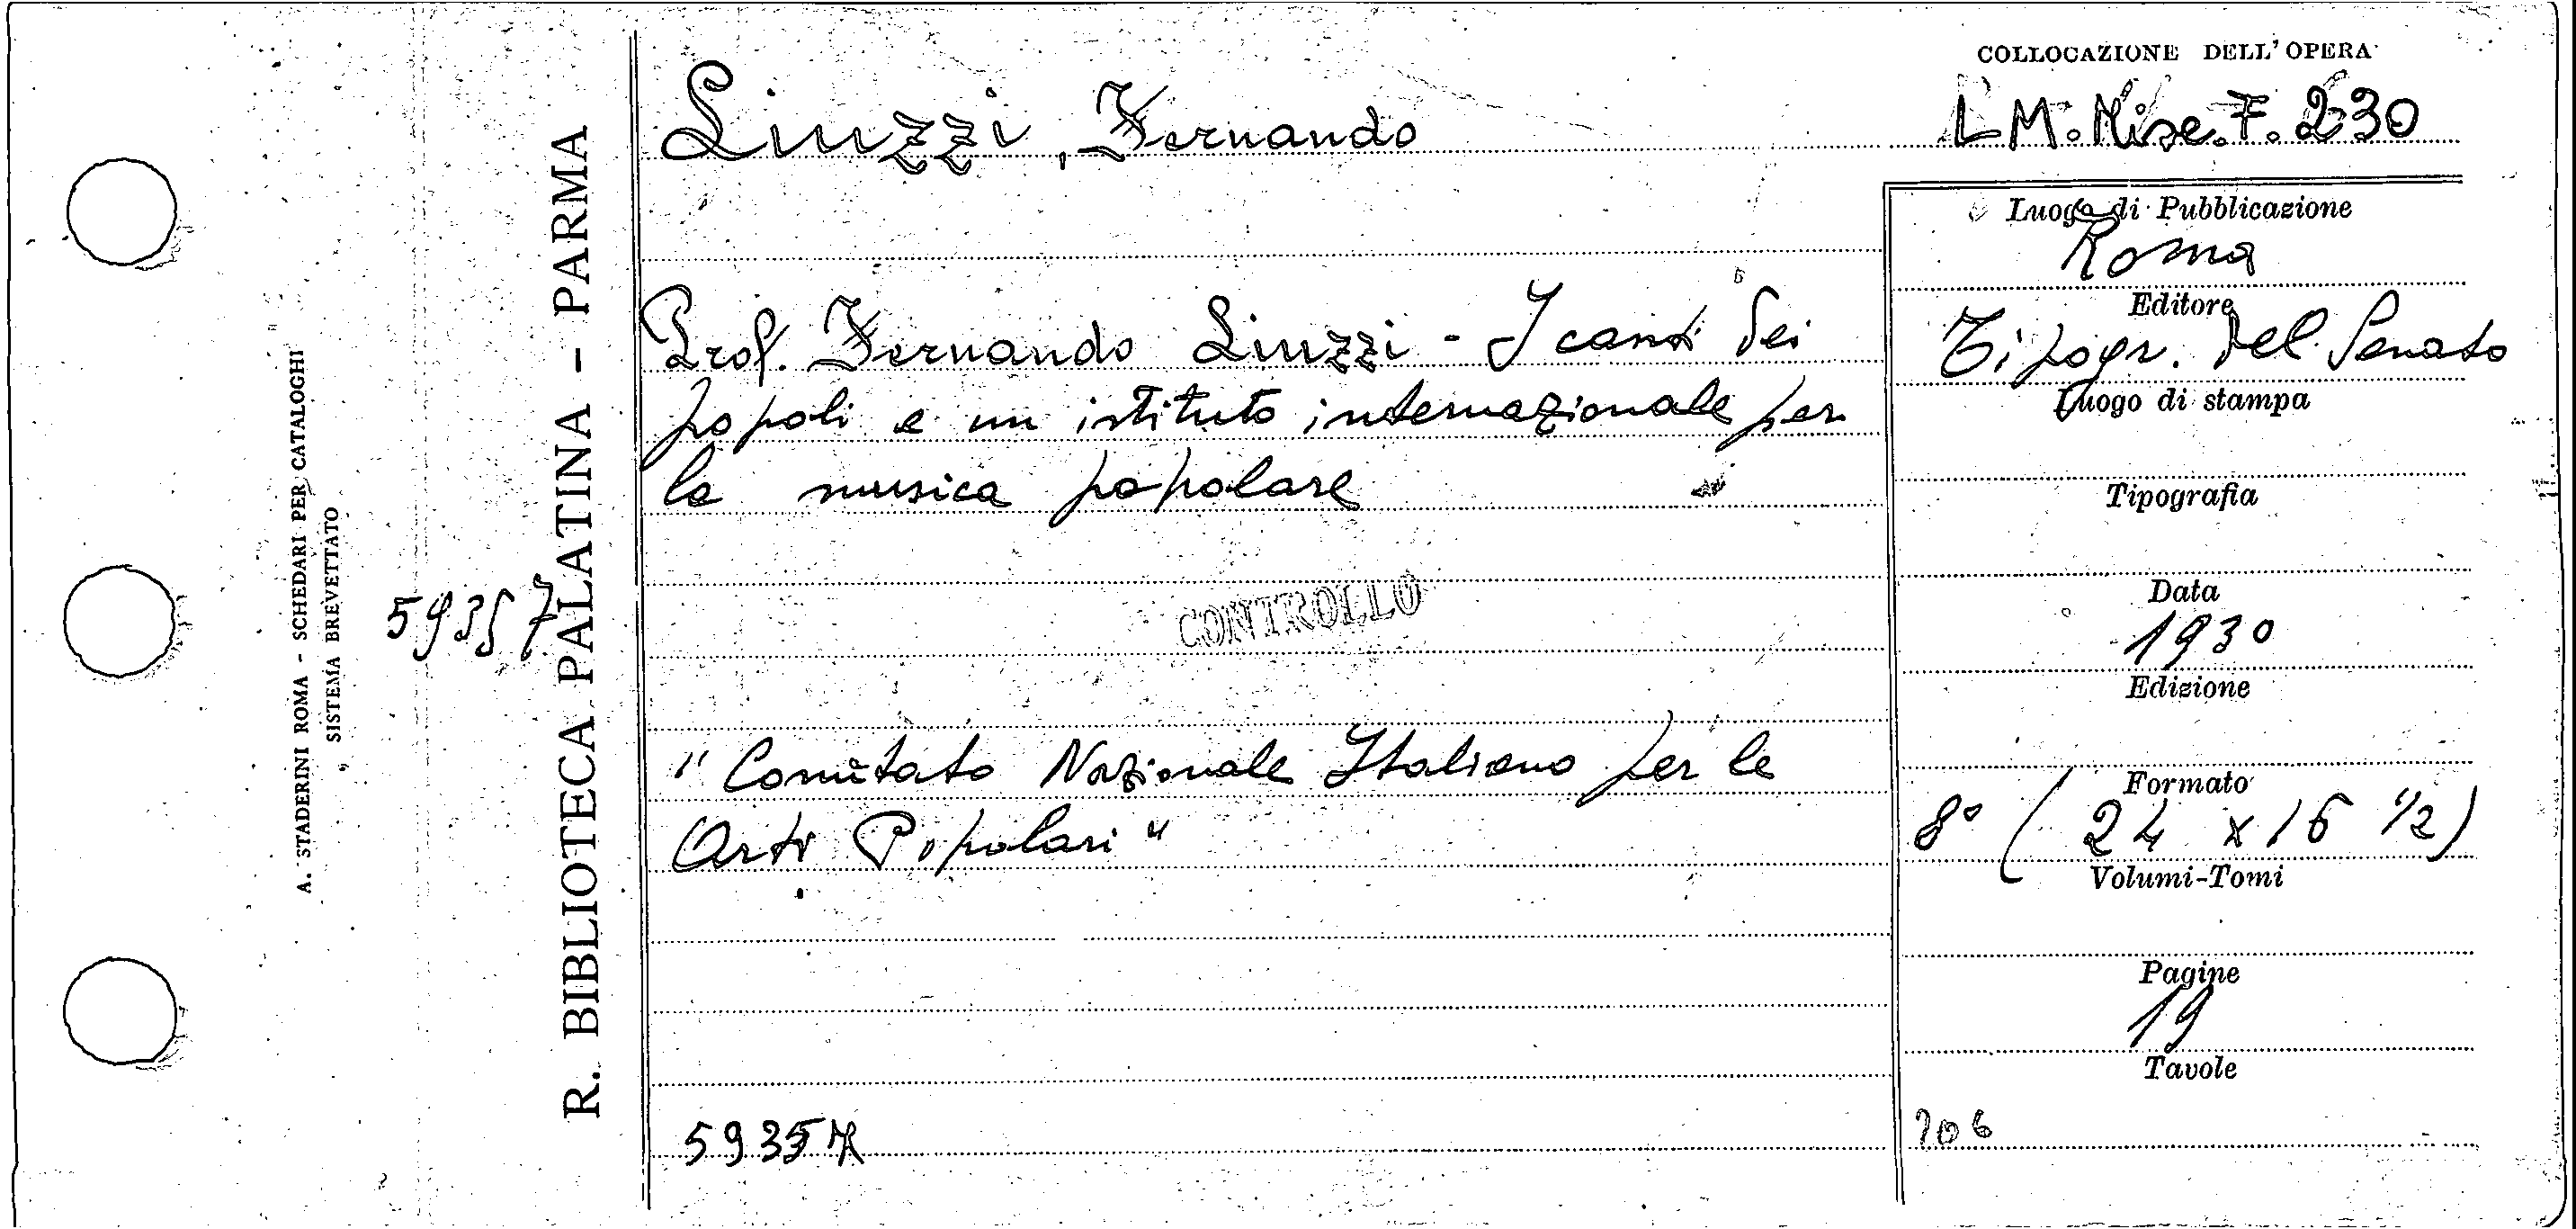 COLLOCAZIONE DELL'OPERA
Liuzzi, Fernando
L M. Misc. F. 230
Prof. Fernando Liuzzi - I canti dei
popoli e un istituto internazionale per
la musica popolare
CONTROLLO
"Comitato Nazionale Italiano per le
Arti Popolari"
59357
Luogo di Pubblicazione
Roma
Editore
Tipogr. del Senato
Luogo di stampa
Tipografia
Data
1930
Edizione
Formato
8° (24 x 16 1/2)
Volumi-Tomi
Pagine
19
Tavole
206
R. BIBLIOTECA PALATINA - PARMA
59357
A. STADERINI ROMA - SCHEDARI PER CATALOGHI
SISTEMA BREVETTATO